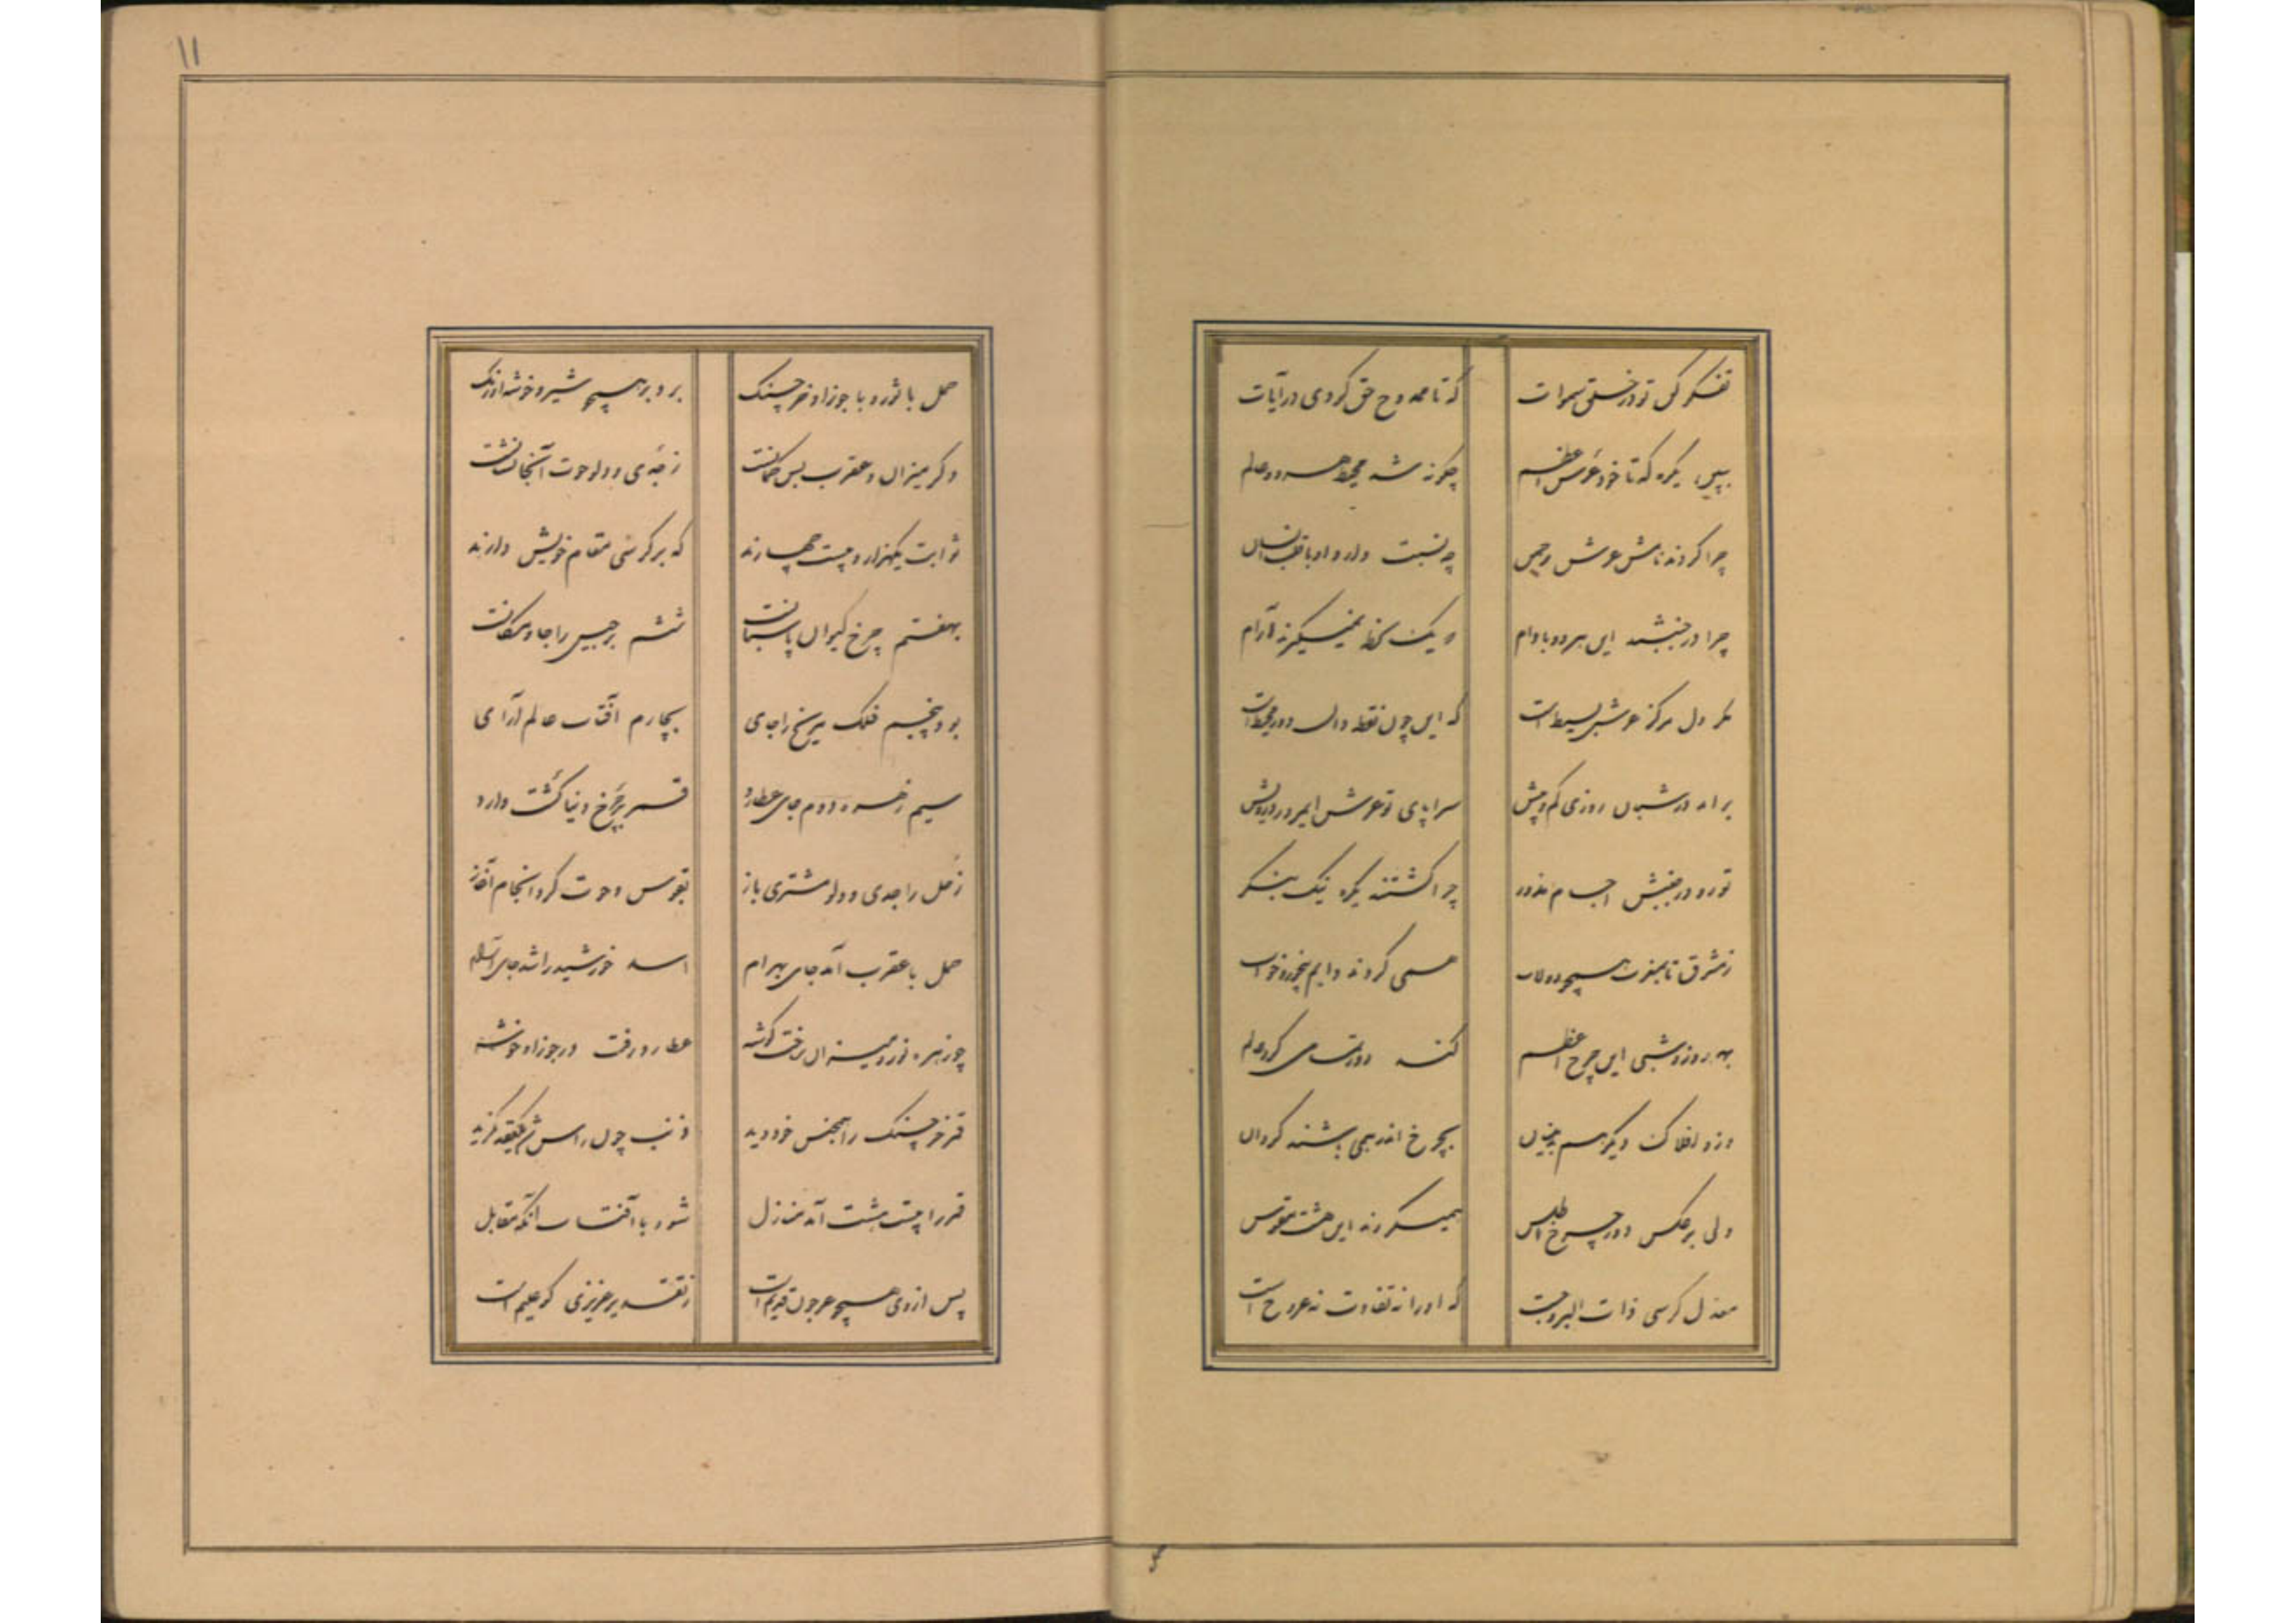 تفکر کن تو در خلق سموات که تا ممدوح حق گردی در آیات
ببین یکره که تا خود عرش اعظم چگونه شد محیط هر دو عالم
چرا کردند نامش عرش رحمن چه نسبت دارد او با قلب انسان
چرا در جنبشند این هر دو مادام که یک لحظه نمیگیرند آرام
مگر دل مرکز عرش بسیط است که این چون نقطه وان دور محیط است
برآید در شبان روزی کم و بیش سراپای تو عرش ای مرد درویش
ازو در جنبش اجسام مدور چرا گشتند یکره نیک بنگر
ز مشرق تا بمغرب همچو دولاب همی گردند دایم بیخور و خواب
بهر روز و شبی این چرخ اعظم کند دور تمامی گرد عالم
وزو افلاک دیگر هم بدینسان بچرخ اندر همی باشند گردان
ولی برعکس دور چرخ اطلس همیگردند این هشت مقوس
معدل کرسی ذات البروجست که او را نه تفاوت نه عروج است
۱۱
حمل با ثور و با جوزا و خرچنگ برو بر همچو شیر و خوشه اورنگ
دگر میزان و عقرب پس کمانست ز جدی و دلو و حوت آنجا نشانست
ثوابت یکهزار و بیست چهارند که بر کرسی مقام خویش دارند
بهفتم چرخ کیوان پاسبانست ششم برجیس را جا و مکانست
بود پنجم فلک مریخ را جای بچارم آفتاب عالم آرای
سیم زهره دوم جای عطارد قمر بر چرخ دنیا گشت وارد
زحل را جدی و دلو و مشتری باز بقوس و حوت کرد انجام آغاز
حمل با عقرب آمد جای بهرام اسد خورشید را شد جای آرام
چو زهره ثور و میزان ساخت گوشه عطارد رفت در جوزا و خوشه
قمر خرچنگ را همجنس خود دید ذنب چون راس شد یک عقده گزید
قمر را بیست هشت آمد منازل شود با آفتاب آنگه مقابل
پس از وی همچو عرجون قدیم است ز تقدیر عزیزی کو علیم است